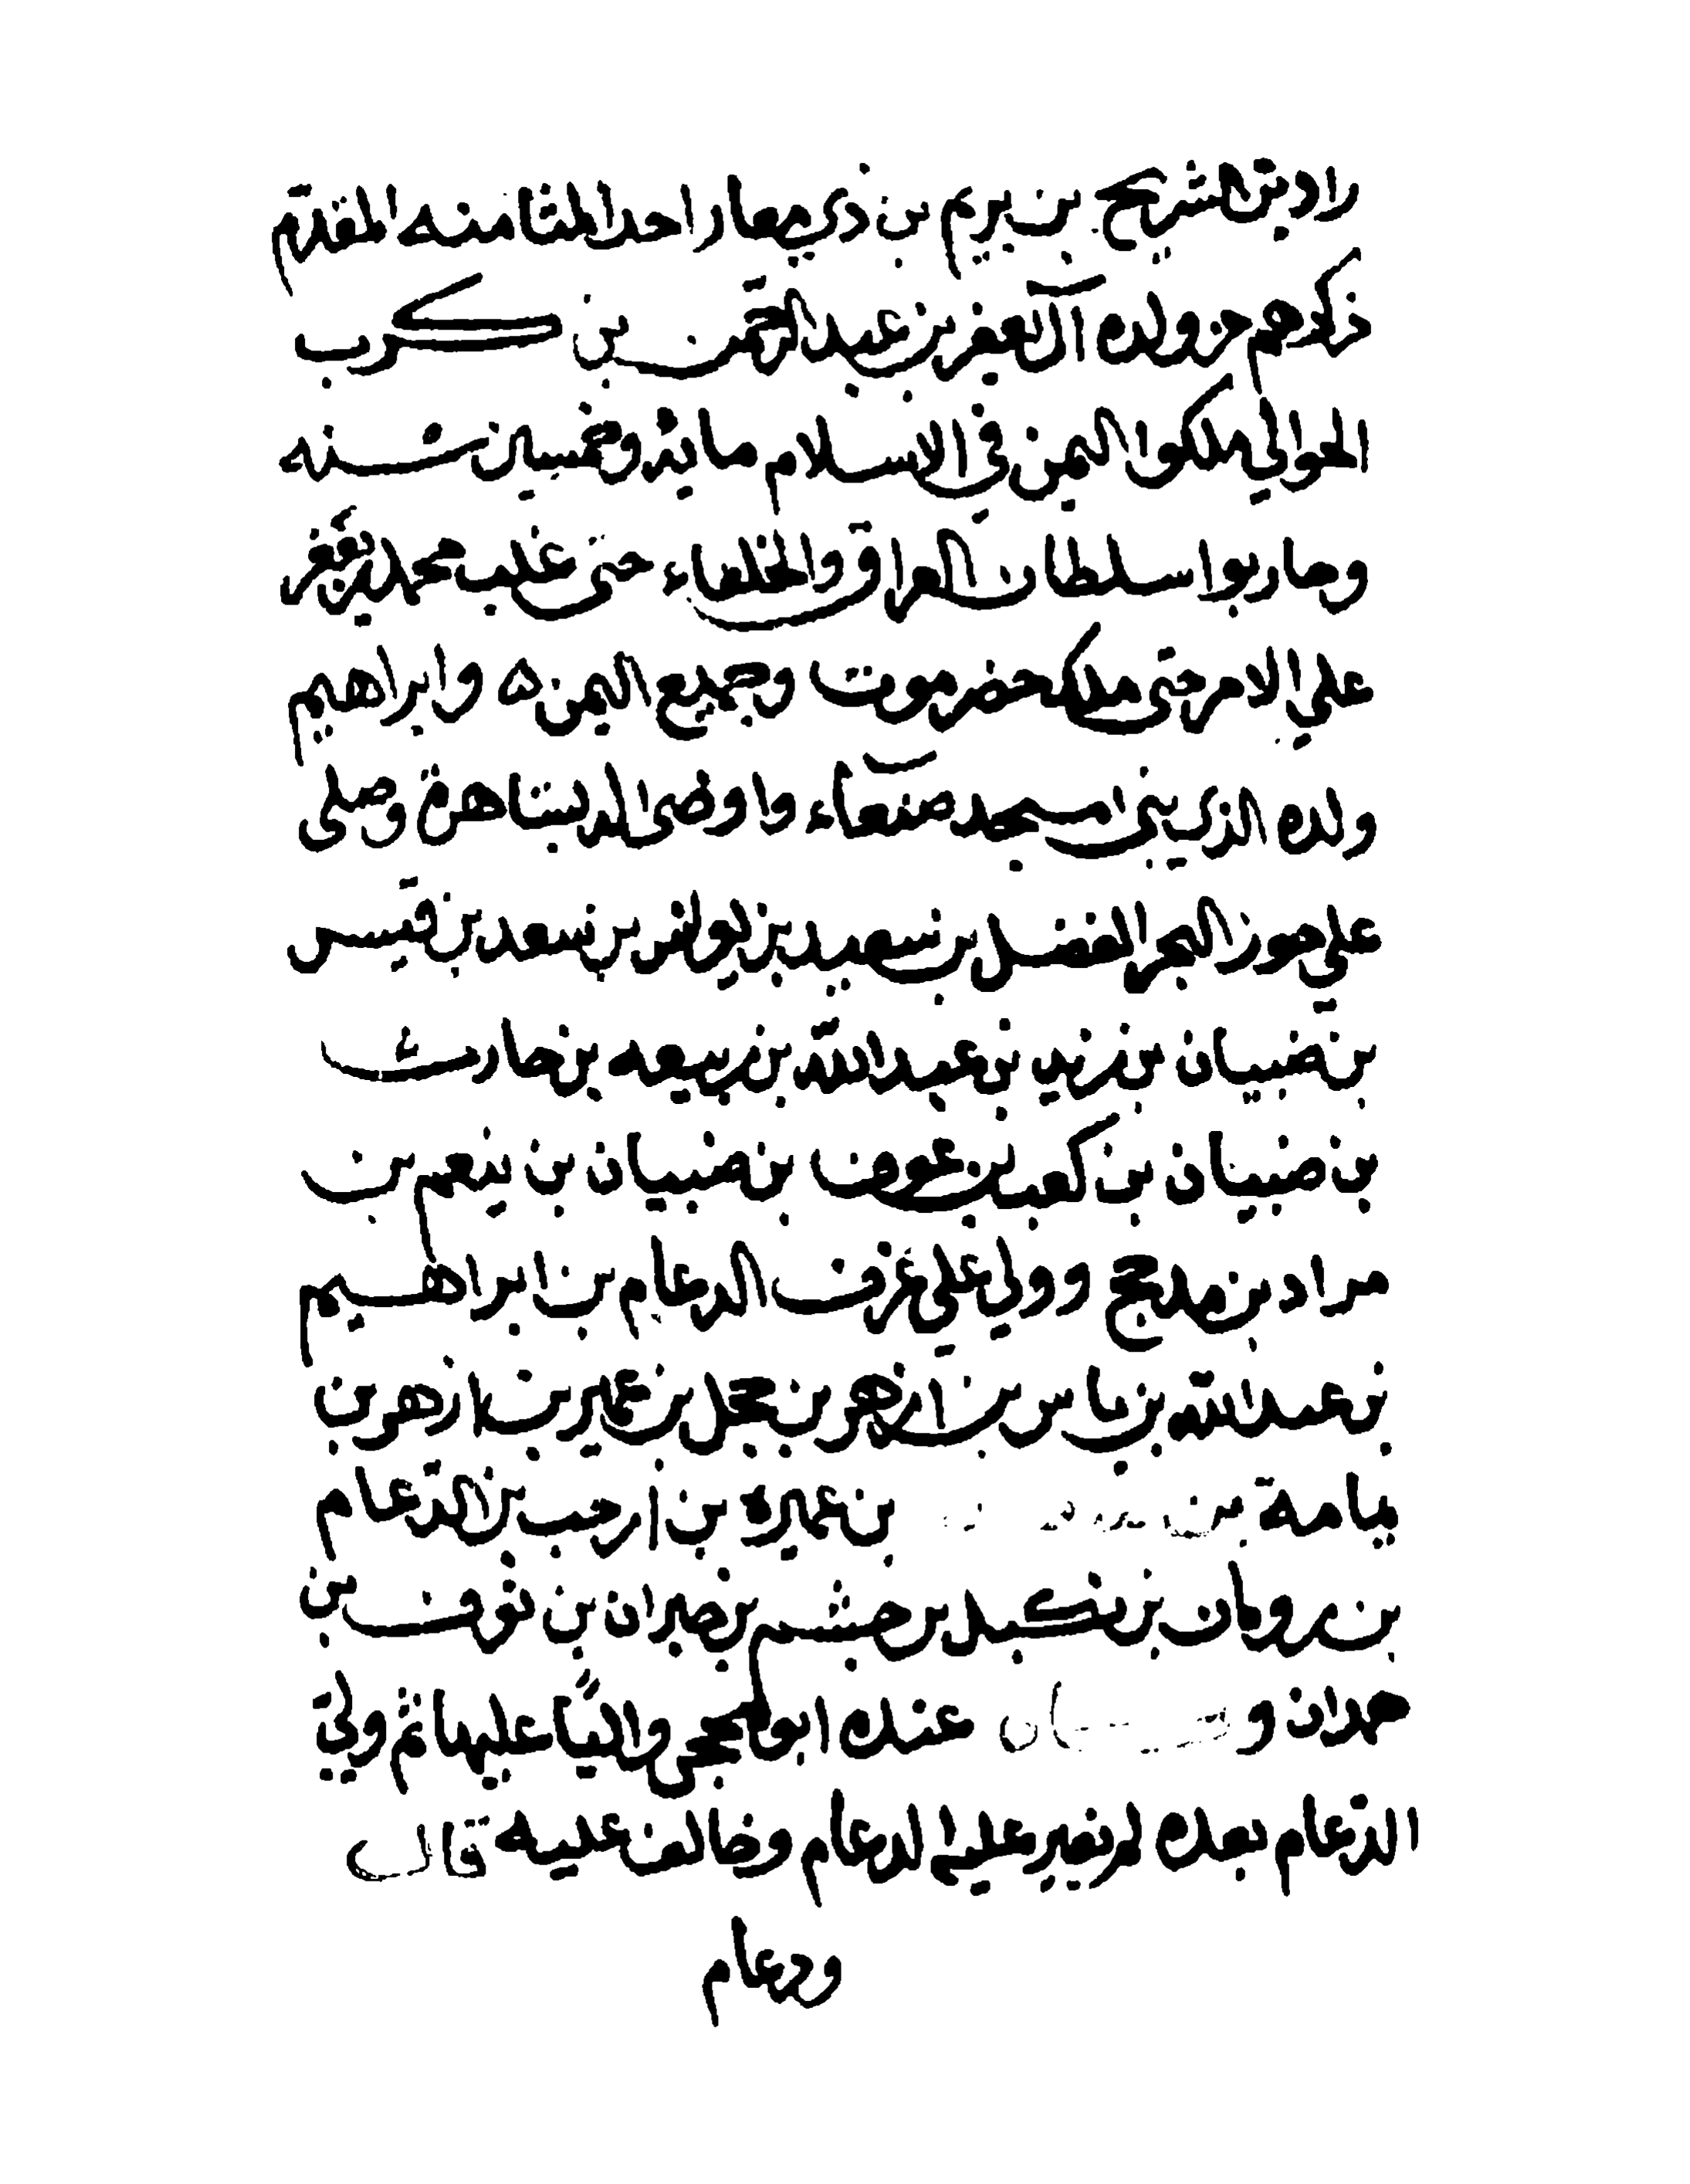 راد بن الشريح بن يريم بن ذي مقار احد المثامنه المقدّم
ذكرهم من ولده آل يعفر بن عبد الرحمن بن كرب
الحوالي ملكوا اليمن في الاسلام مايئة وخمسين سنه
وحاربوا سلطان العراق والخلفاء حتى غلب محمد بن يعفر
علي الامر حتى ملك حضرموت وجميع اليمن ه وابراهيم
ولده الذي بنى مسجد صنعآء واوصى المدبتناهرة وصلى
علي حوز البحر الفضل بن سعيد بن بن سعد بن قيس
بن ضبيان بن زيد بن عبد الله بن ربيعه بن حارث
بن ضبيان بن كعب بن عوف بن ضبيان بن ينعم بن
مراد بن مذحج وولي علي عزف الدعام بن ابراهيم
بن عبد الله بن ياس بن ازهر بن بجل بن عمير بن ازهر بن
يامة بن بن عميره بن ارحب بن الدّعام
بن رومان بن بكيل بن جشم بن خيران بن نوف بن
همدان و عنده ابو واليًا عليها ثم وليّ
الدّعام بعده ثم تغير علي الدعام وخالف عليه قال
ودعام